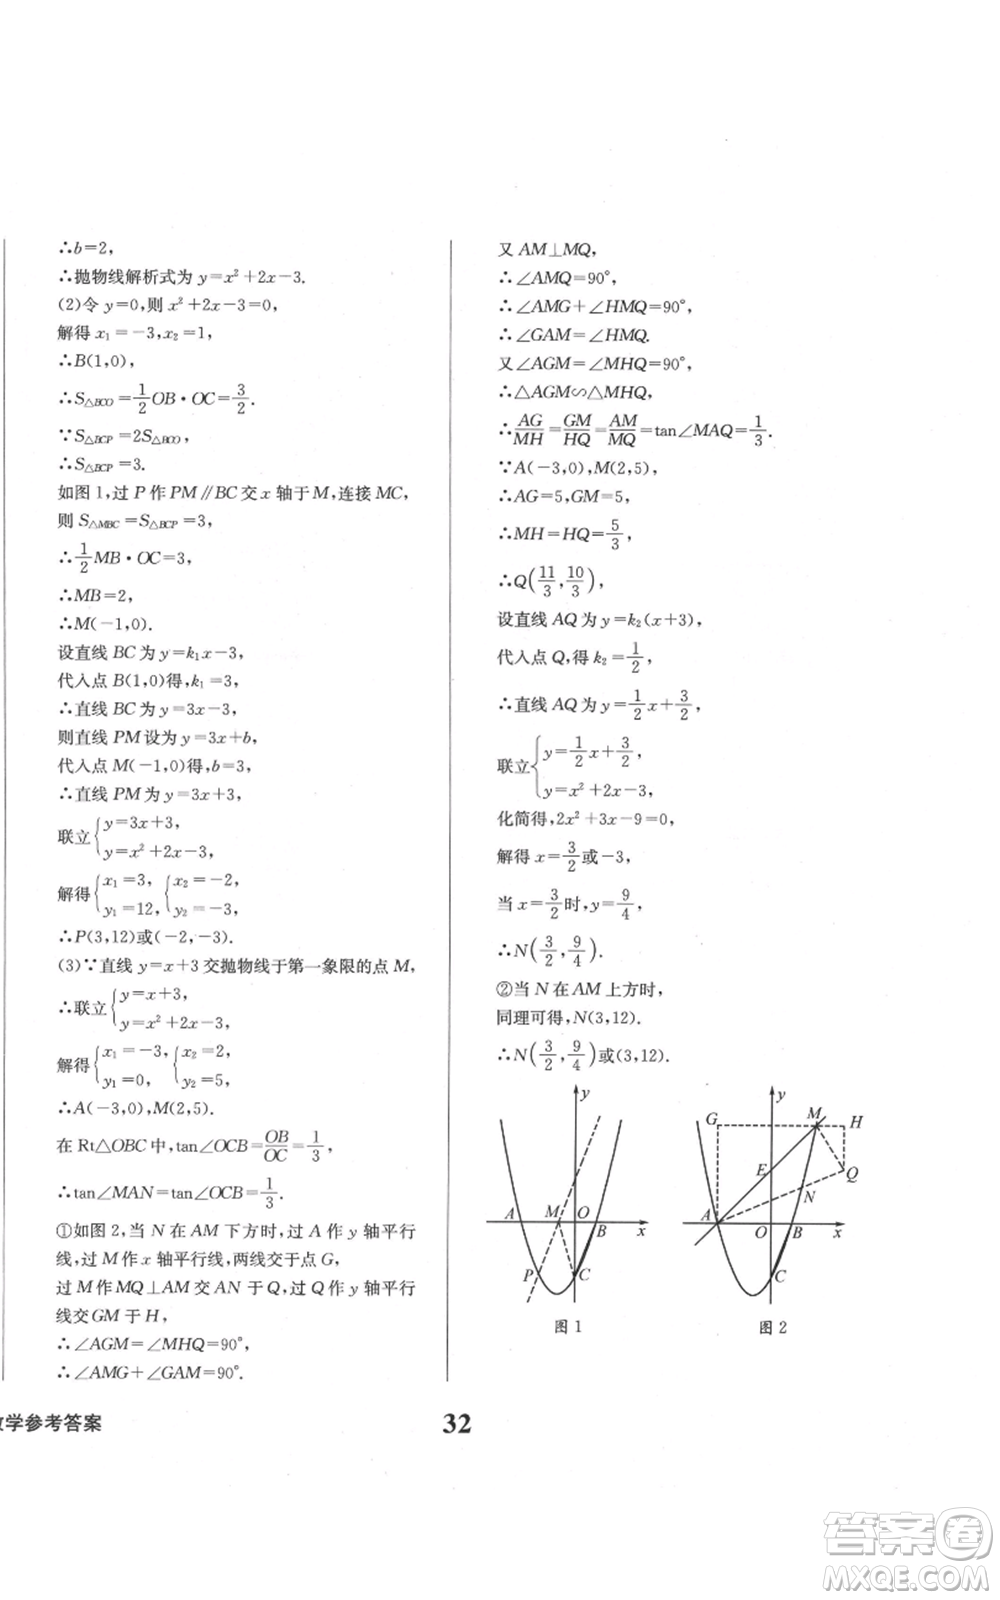 ∴b=2,
∴抛物线解析式为 y=x²+2x-3.
(2)令 y=0,则 x²+2x-3=0,
解得 x₁=-3,x₂=1,
∴B(1,0),
∴S△BCO=1/2 OB·OC=3/2.
∵S△BCP=2S△BCO,
∴S△BCP=3.
如图1,过 P 作 PM∥BC 交 x 轴于 M,连接 MC,
则 S△MBC=S△BCP=3,
∴1/2 MB·OC=3,
∴MB=2,
∴M(-1,0).
设直线 BC 为 y=k₁x-3,
代入点 B(1,0)得,k₁=3,
∴直线 BC 为 y=3x-3,
则直线 PM 设为 y=3x+b,
代入点 M(-1,0)得,b=3,
∴直线 PM 为 y=3x+3,
联立{y=3x+3,
y=x²+2x-3,
解得{x₁=3, {x₂=-2,
y₁=12, y₂=-3,
∴P(3,12)或(-2,-3).
(3)∵直线 y=x+3 交抛物线于第一象限的点 M,
∴联立{y=x+3,
y=x²+2x-3,
解得{x₁=-3, {x₂=2,
y₁=0, y₂=5,
∴A(-3,0),M(2,5).
在 Rt△OBC 中,tan∠OCB=OB/OC=1/3,
∴tan∠MAN=tan∠OCB=1/3.
①如图2,当 N 在 AM 下方时,过 A 作 y 轴平行
线,过 M 作 x 轴平行线,两线交于点 G,
过 M 作 MQ⊥AM 交 AN 于 Q,过 Q 作 y 轴平行
线交 GM 于 H,
∴∠AGM=∠MHQ=90°.
∴∠AMG+∠GAM=90°.
又 AM⊥MQ,
∴∠AMQ=90°,
∴∠AMG+∠HMQ=90°,
∴∠GAM=∠HMQ.
又∠AGM=∠MHQ=90°,
∴△AGM∽△MHQ,
∴AG/MH=GM/HQ=AM/MQ=tan∠MAQ=1/3.
∵A(-3,0),M(2,5),
∴AG=5,GM=5,
∴MH=HQ=5/3,
∴Q(11/3,10/3),
设直线 AQ 为 y=k₂(x+3),
代入点 Q,得 k₂=1/2,
∴直线 AQ 为 y=1/2 x+3/2,
联立{y=1/2 x+3/2,
y=x²+2x-3,
化简得,2x²+3x-9=0,
解得 x=3/2 或-3,
当 x=3/2 时,y=9/4,
∴N(3/2,9/4).
②当 N 在 AM 上方时,
同理可得,N(3,12).
∴N(3/2,9/4)或(3,12).
y
A M O B x
P C
图1
y
G M H
E Q
N
A O B x
C
图2
数学参考答案
32
答案卷
MXQE.COM